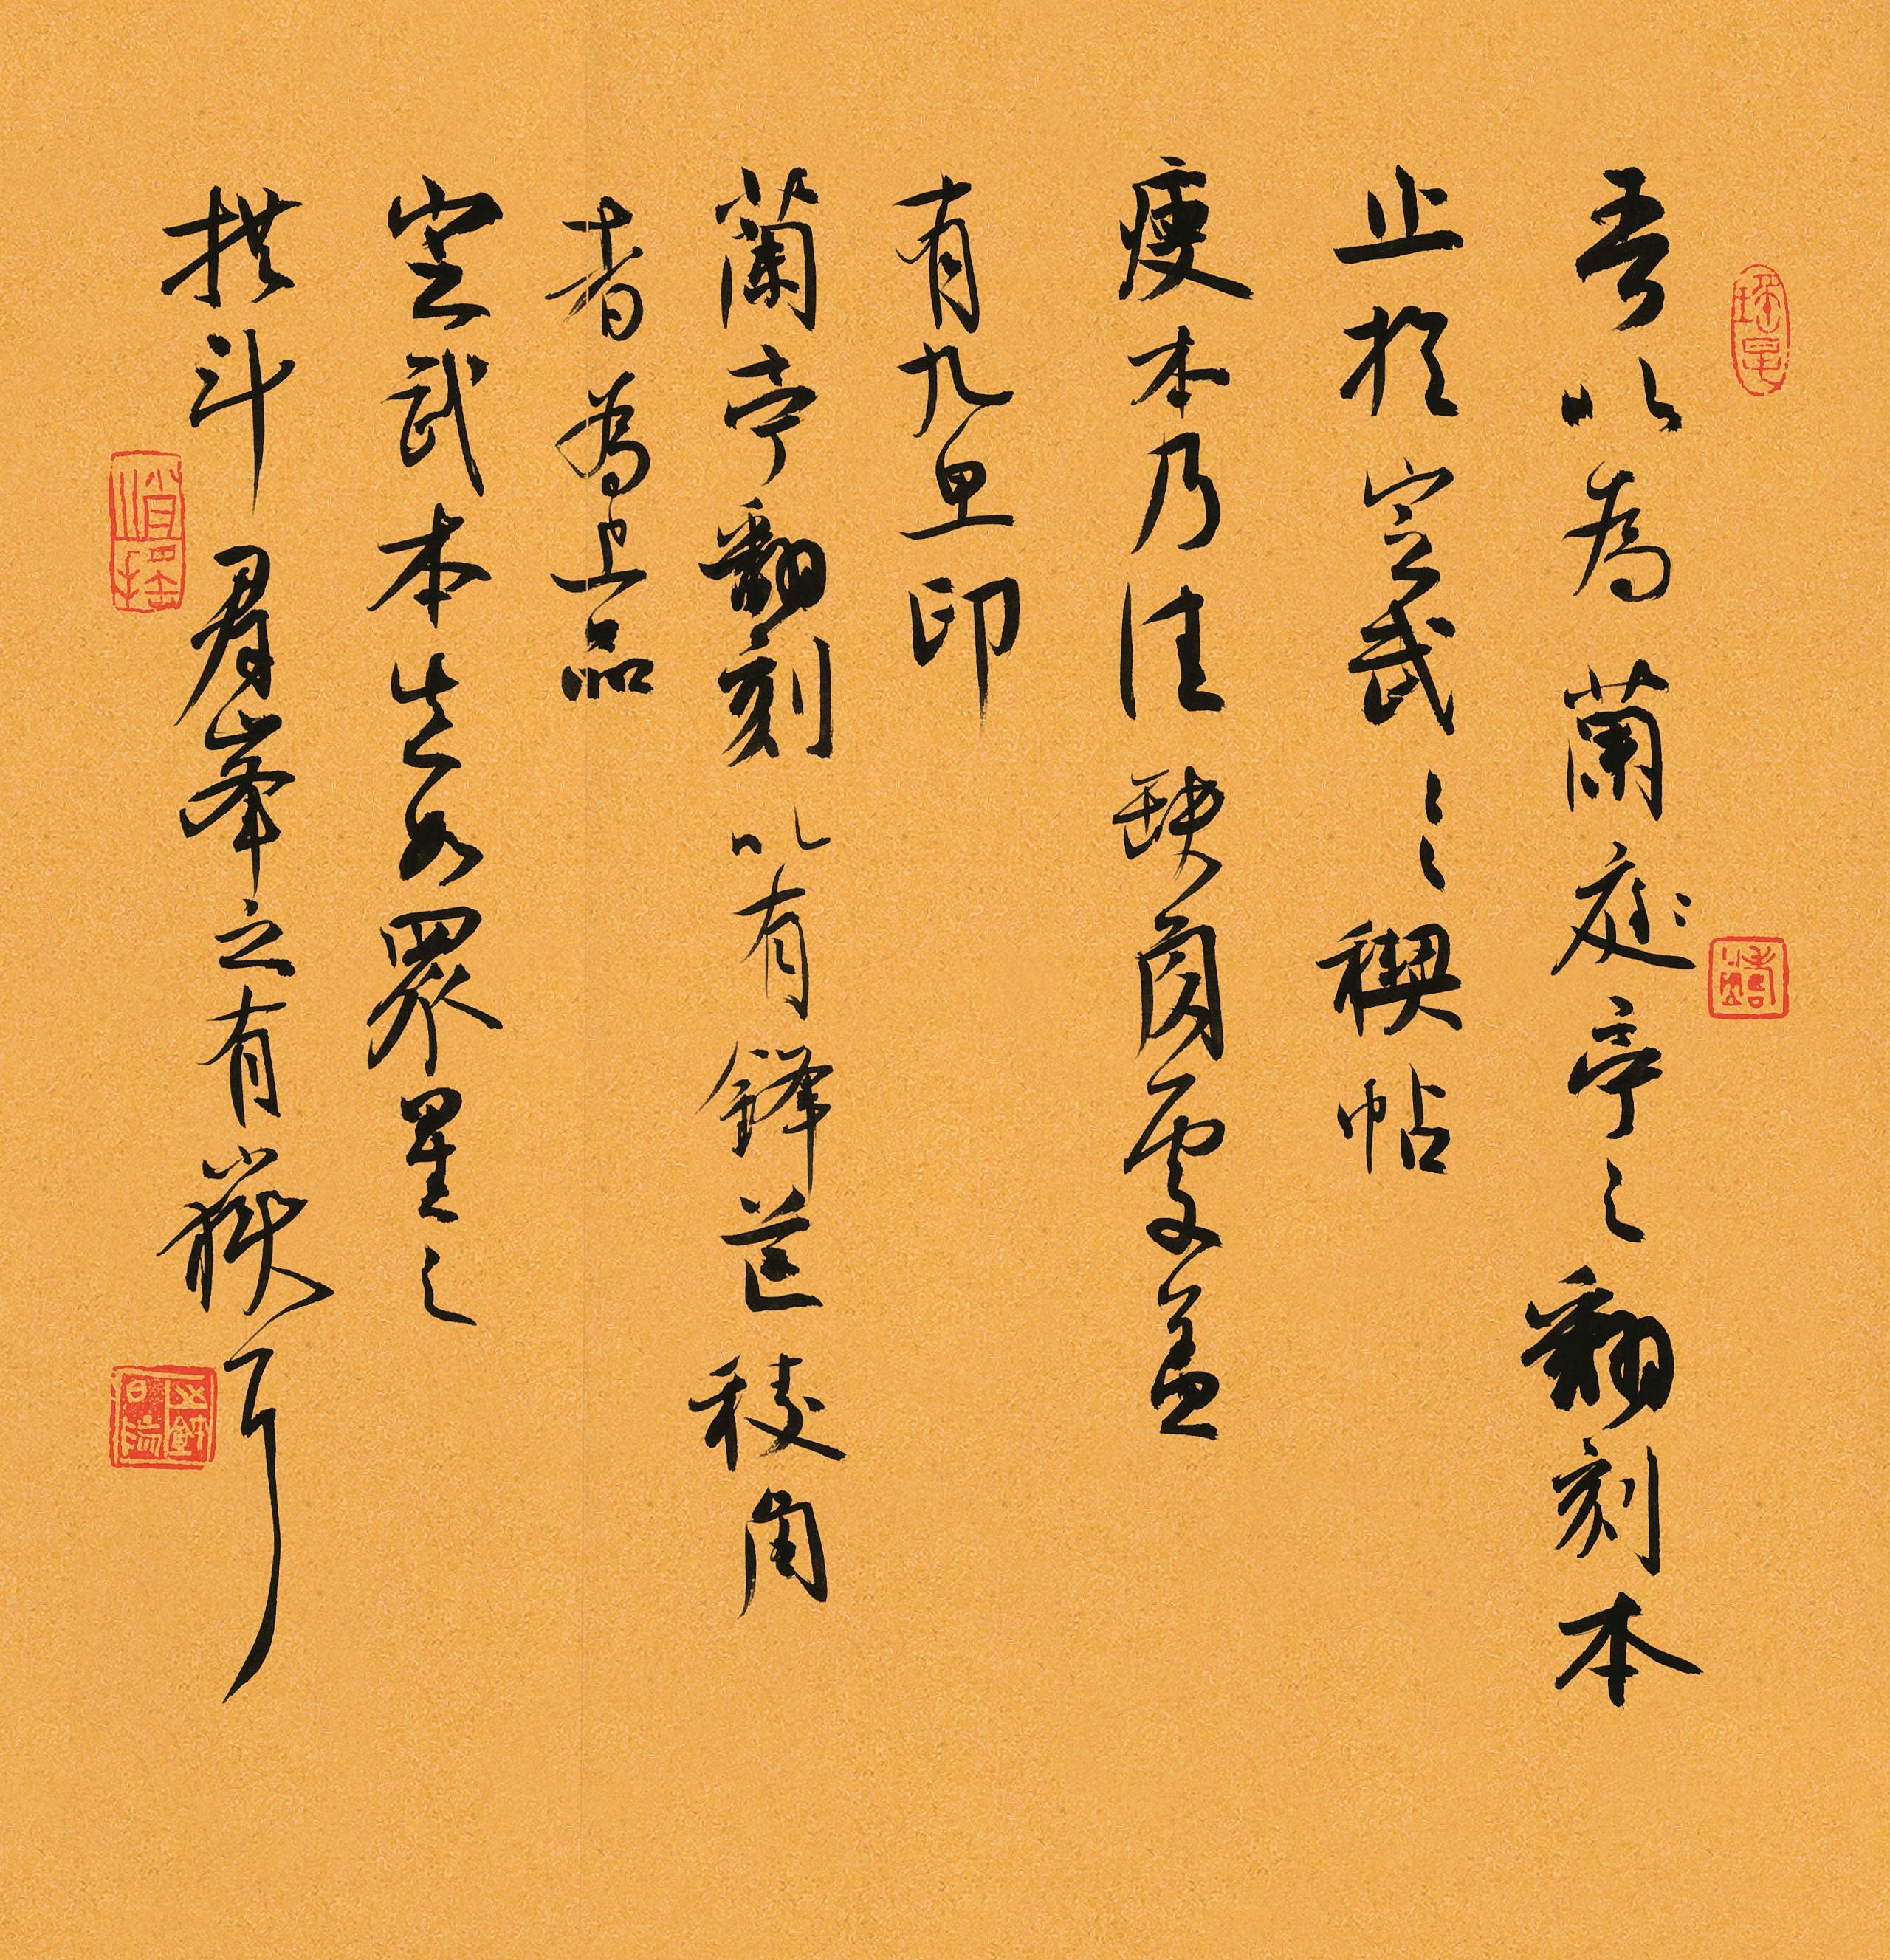 吾以為蘭庭亭之翻刻本
止於定武之禊帖
瘦本乃佳缺角處蓋
有九里印
蘭亭翻刻以有鋒芒稜角
者為上品
定武本出如眾星之
拱斗群峯之有嶽耳